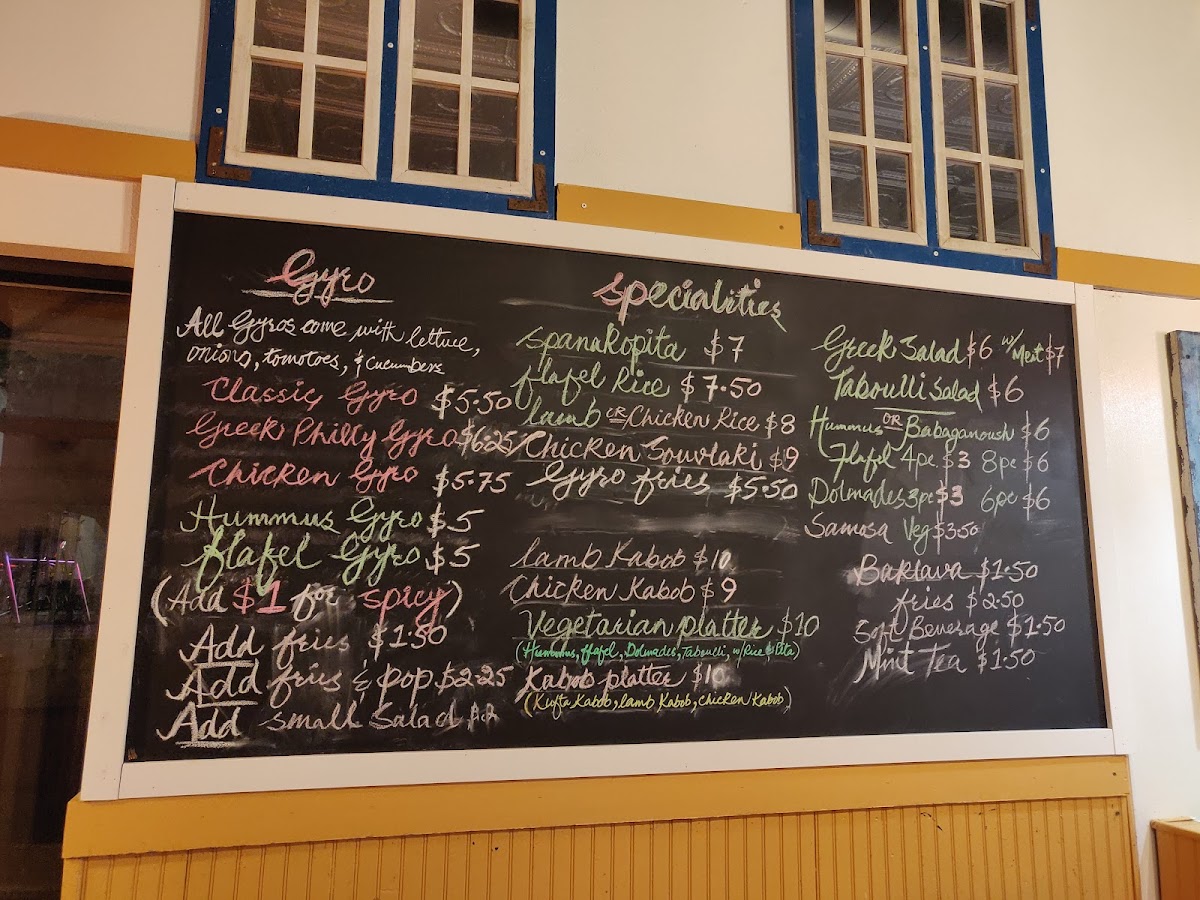 Gyro
All Gyros come with lettuce,
onions, tomotoes, & cucumbers
Classic Gyro $5.50
Greek Philly Gyro $6.25
Chicken Gyro $5.75
Hummus Gyro $5
flafel Gyro $5
(Add $1 for spicy)
Add fries $1.50
Add fries & pop $2.25
Add small Salad
specialities
spanakopita $7
flafel Rice $7.50
lamb OR Chicken Rice $8
Chicken Souvlaki $9
Gyro fries $5.50
lamb Kabob $10
Chicken Kabob $9
Vegetarian platter $10
(Hummus, flafel, Dolmades, Taboulli, w/Rice & Pita)
Kabob platter $10
(Kufta Kabob, lamb Kabob, chicken Kabob)
Greek Salad $6 w/ Meat $7
Taboulli Salad $6
Hummus OR Babaganoush $6
flafel 4pc $3 8pc $6
Dolmades 3pc $3 6pc $6
Samosa Veg $3.50
Baklava $1.50
fries $2.50
Soft Beverage $1.50
Mint Tea $1.50